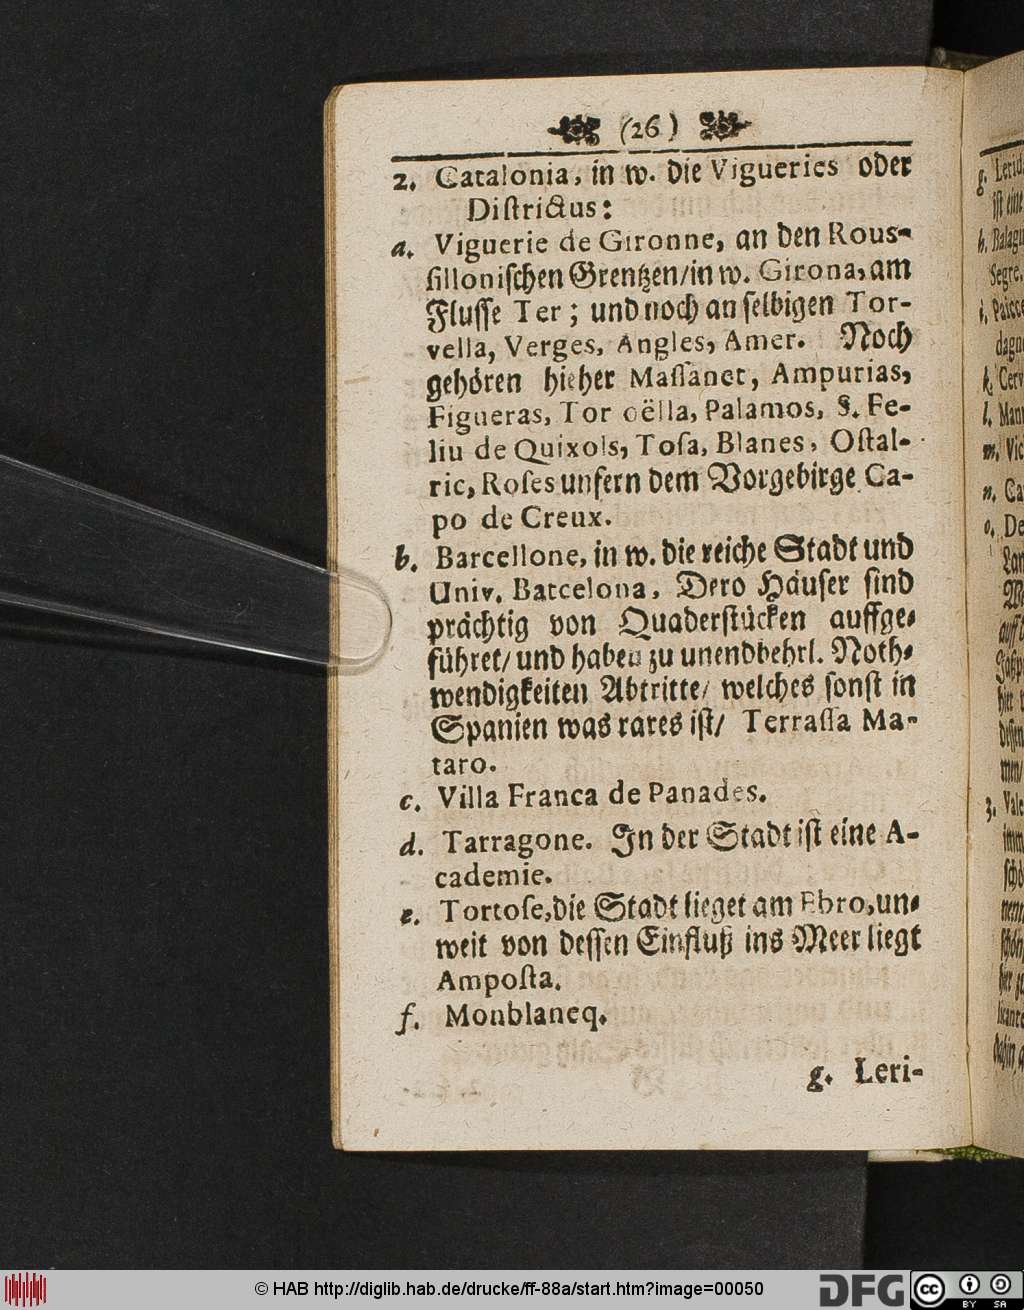 (26)
2. Catalonia, in w. die Vigueries oder
Districtus:
a. Viguerie de Gironne, an den Rous-
sillonischen Grentzen/in w. Girona, am
Flusse Ter; und noch an selbigen Tor-
vella, Verges, Angles, Amer. Noch
gehören hieher Massanet, Ampurias,
Figueras, Tor oëlla, Palamos, S. Fe-
liu de Quixols, Tosa, Blanes, Ostal-
ric, Roses unfern dem Vorgebirge Ca-
po de Creux.
b. Barcellone, in w. die reiche Stadt und
Univ. Barcelona, Dero Häuser sind
prächtig von Quaderstücken auffge-
führet/ und haben zu unendbehrl. Noth-
wendigkeiten Abtritte/ welches sonst in
Spanien was rares ist/ Terrassa Ma-
taro.
c. Villa Franca de Panades.
d. Tarragone. In der Stadt ist eine A-
cademie.
e. Tortose, die Stadt lieget am Ebro, un-
weit von dessen Einfluß ins Meer liegt
Amposta.
f. Monblancq.
g. Leri-
g. Lerid
ist eine
h. Balagu
Segre.
dagn
k. Cerv
l. Man
m. Vic
n. Ca
o. De
3. Vale
© HAB http://diglib.hab.de/drucke/ff-88a/start.htm?image=00050
DFG
cc BY SA